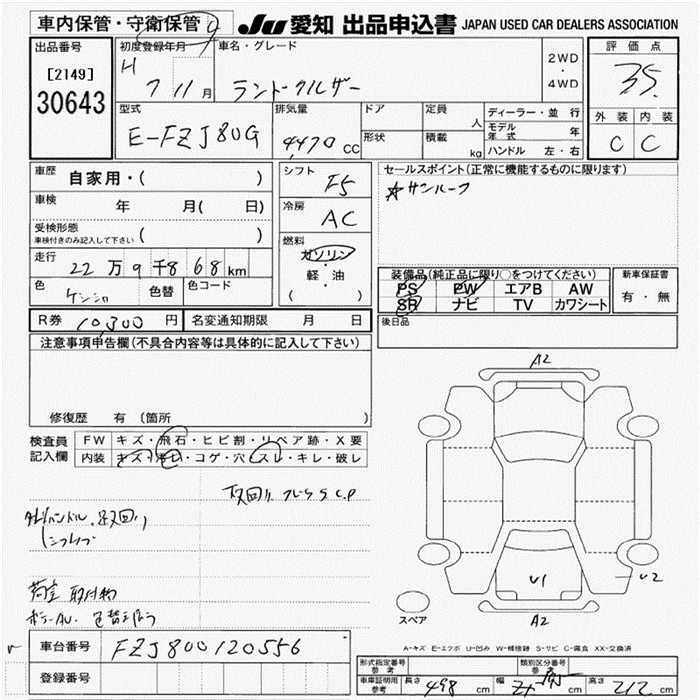 車内保管・守衛保管 9
JU 愛知 出品申込書 JAPAN USED CAR DEALERS ASSOCIATION
出品番号
[2149]
30643
初度登録年月
H 7 11 月
車名・グレード
ランドクルザー
2WD
・
4WD
評価点
3.5
外装 内装
C C
型式
E-FZJ80G
排気量
4470 CC
ドア
形状
定員
人
積載
kg
ディーラー・並行
モデル年式 年
ハンドル 左・右
車歴
自家用・( )
車検
年 月( 日)
受検形態
車検付きのみ記入して下さい ( )
走行
22 万 9 千8 68 km
色
色替
色コード
シフト
F5
冷房
AC
燃料
ガソリン
・
軽・油
( )
セールスポイント(正常に機能するものに限ります)
☆サンルーフ
装備品(純正品に限り○をつけてください)
PS PW エアB AW
SR ナビ TV カワシート
新車保証書
有・無
後日品
R券 10,300 円
名変通知期限 月 日
注意事項申告欄(不具合内容等は具体的に記入して下さい)
修復歴 有(箇所 )
検査員
記入欄
FW キズ・飛石・ヒビ割・リペア跡・X要
内装 キズ・汚れ・コゲ・穴・スレ・キレ・破レ
荷室 取付物
A2
U1
U2
A2
スペア
A-キズ E-エクボ U-凹み W-補修跡 S-サビ C-腐食 XX-交換済
車台番号 FZJ800120556
登録番号
形式指定番号
参考
類別区分番号
参考
車庫証明用
参考
長さ 498 cm
幅 cm
高さ 212 cm